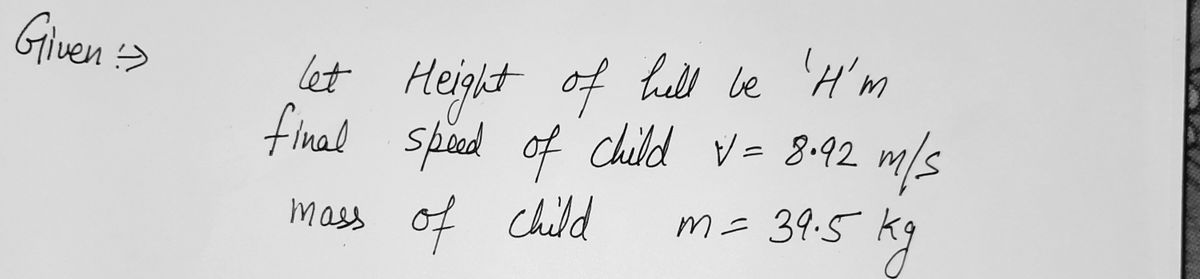 Given :⇒
let Height of hill be 'H'm
final speed of child v = 8.92 m/s
mass of child m = 39.5 kg